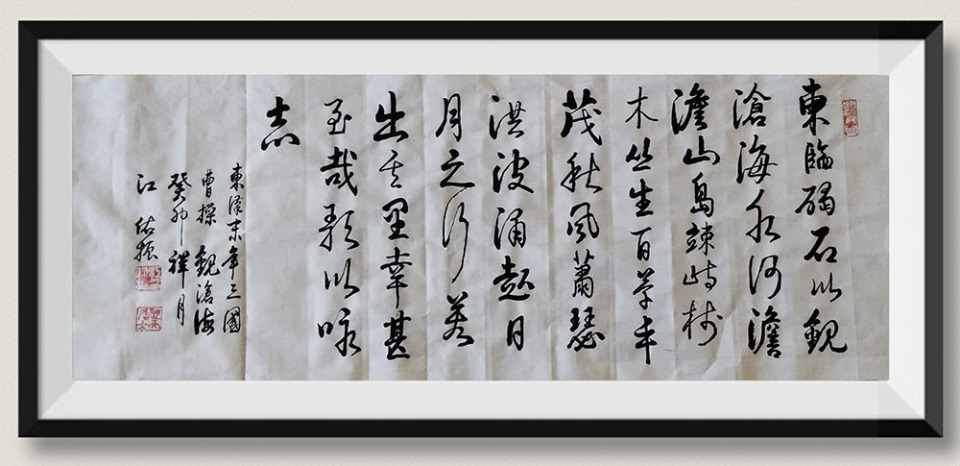 東臨碣石以觀
滄海水何澹
澹山島竦峙樹
木丛生百草丰
茂秋風蕭瑟
洪波涌起日
月之行若
出其里幸甚
至哉歌以咏
志
東漢末年三國
曹操 觀滄海
癸卯禅月
江